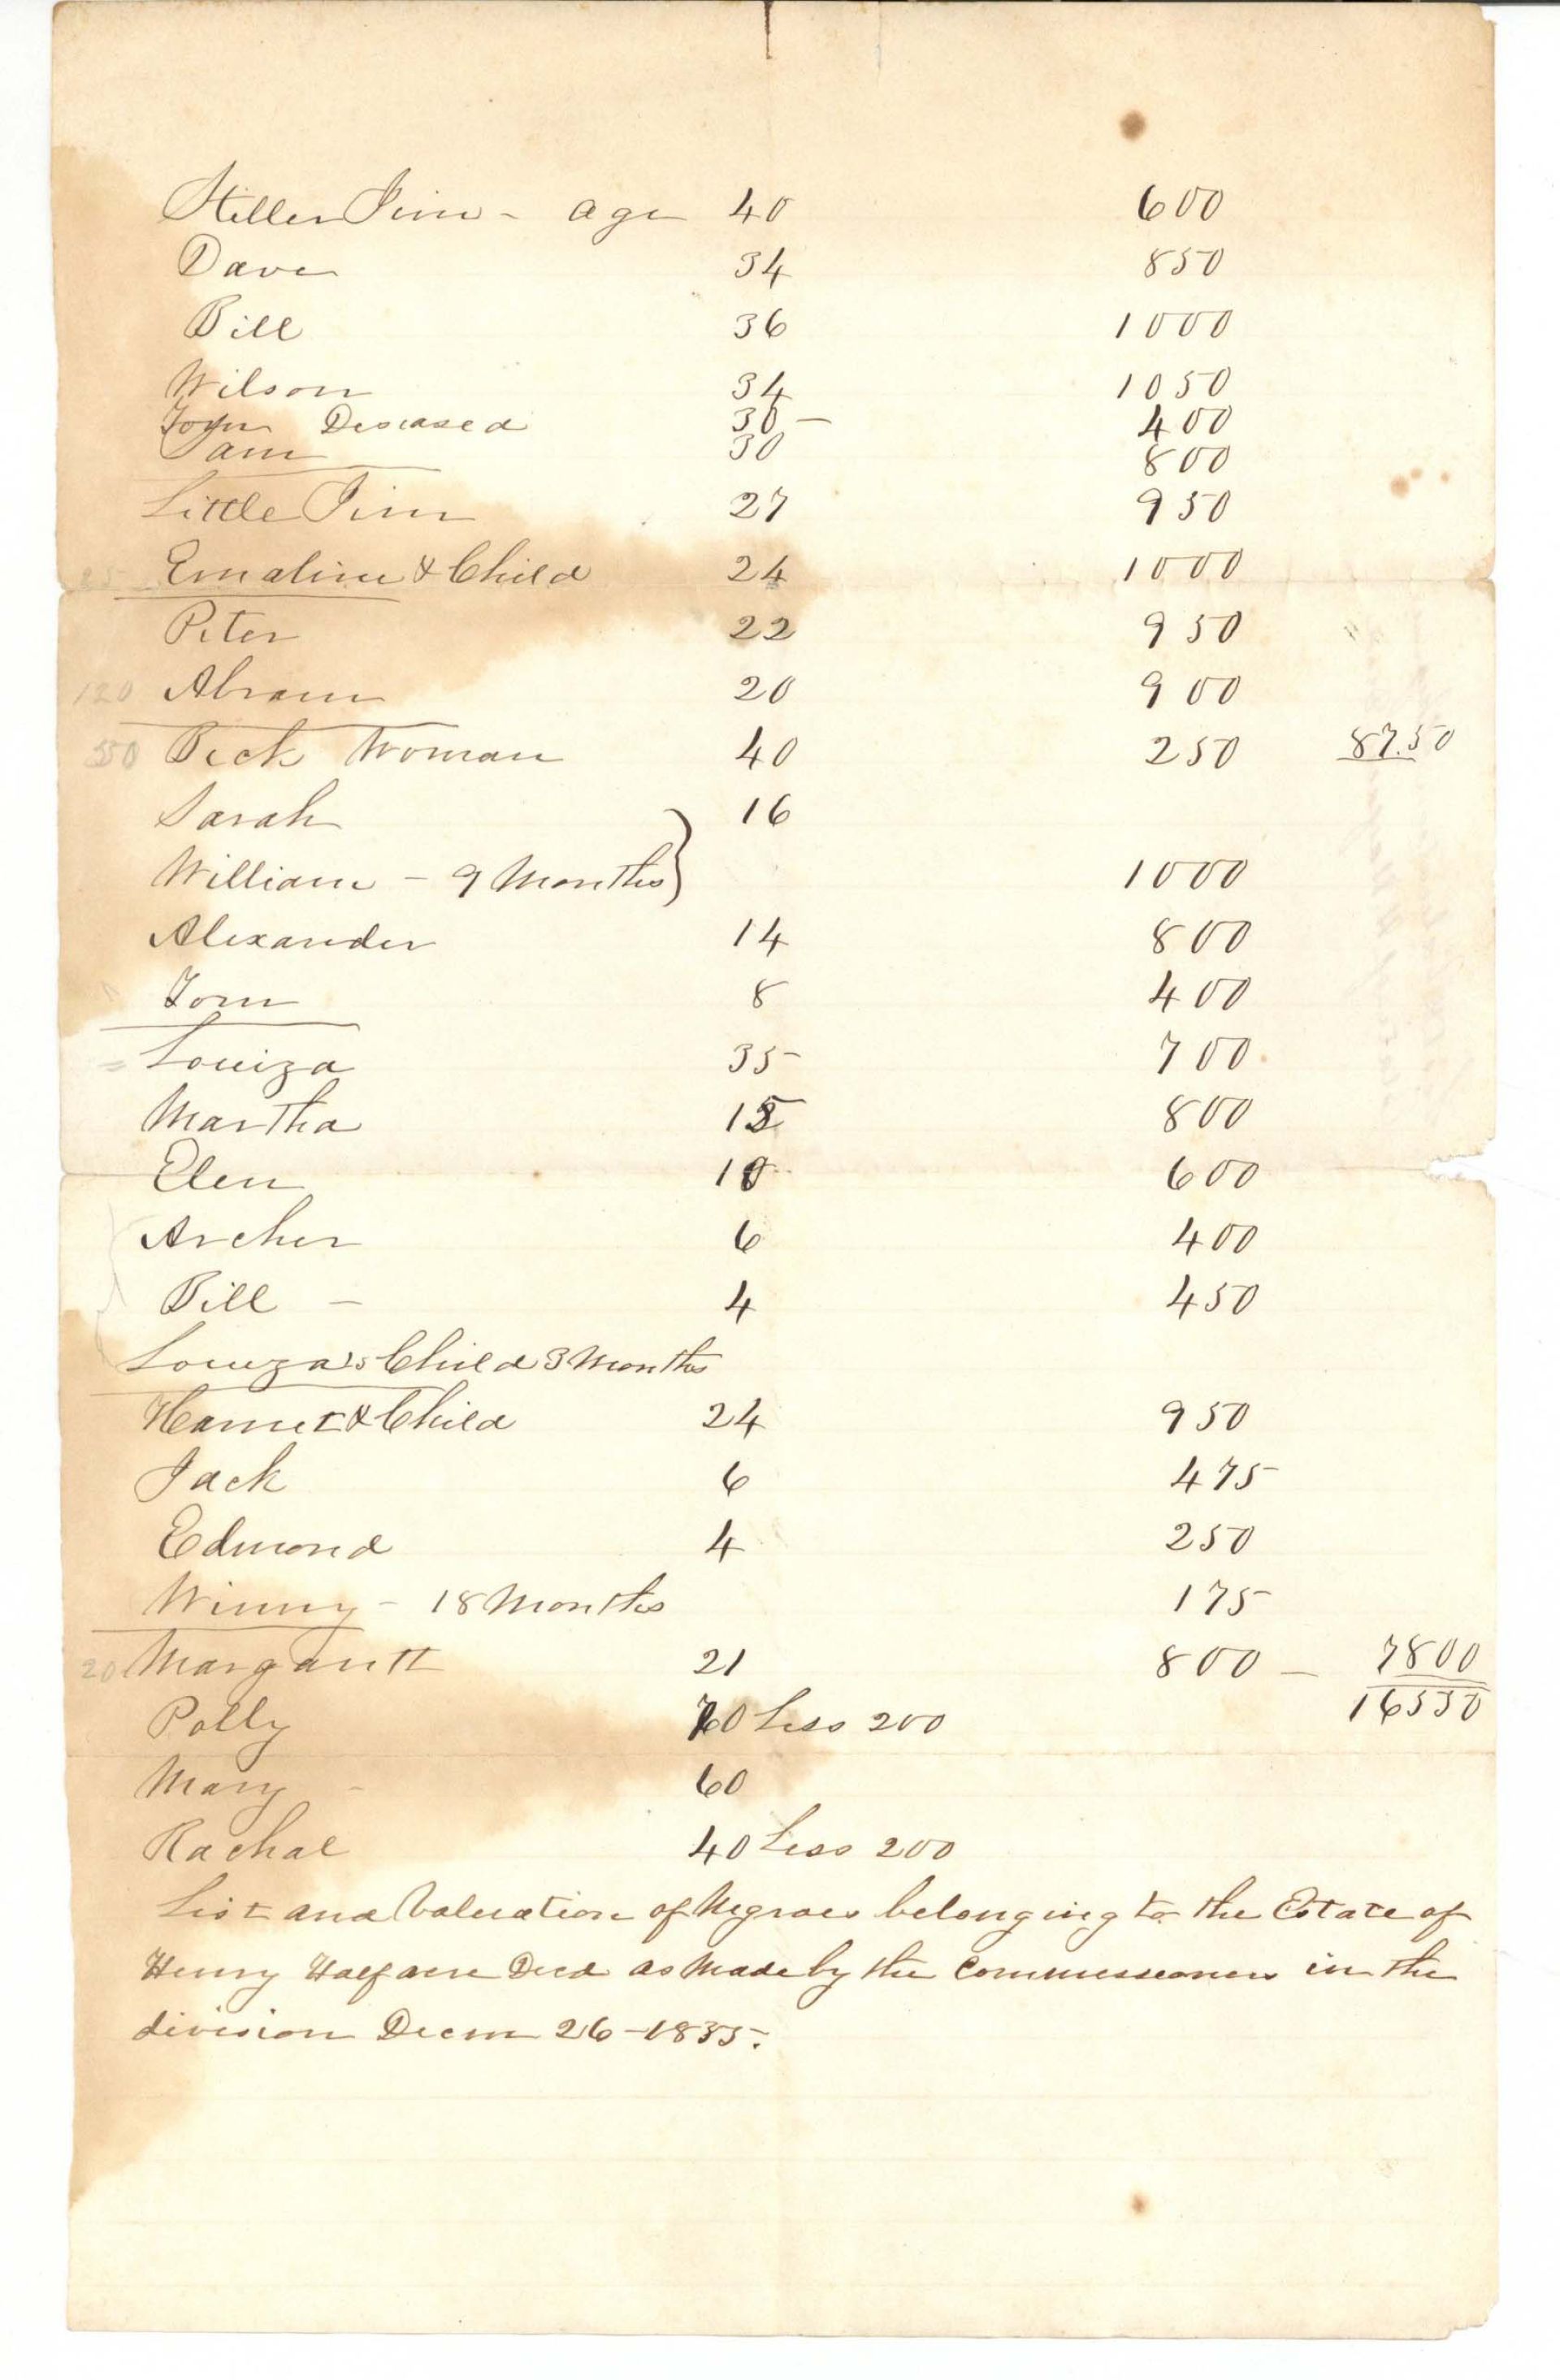 Stiller Jim - age 40 600
Dave 34 850
Bill 36 1000
Wilson 34 1050
Tom Deseased 30 - 400
Sam 30 800
Little Jim 27 950
Emaline & Child 24 1000
Peter 22 950
120 Abram 20 900
350 Beck Woman 40 250 8750
Sarah 16
William - 9 Months } 1000
Alexander 14 800
Tom 8 400
Louiza 35 700
Martha 15 800
Elen 10 600
Archer 6 400
Bill - 4 450
Louiza's Child 3 Months
Harriet & Child 24 950
Jack 6 475
Edmond 4 250
Winny - 18 Months 175
20 Margarett 21 800 - 7800
16550
Polly 70 Less 200
Mary - 60
Rachal 40 Less 200
List and Valuation of Negroes belonging to the Estate of
Henry Halfacre Decd as Made by the Commissioners in the
division Decm 26 - 1855.